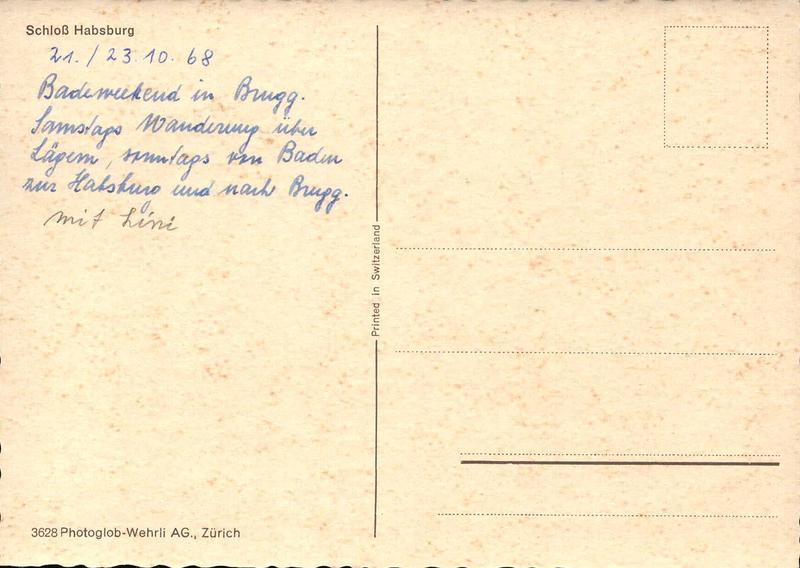 Schloß Habsburg
21./23.10.68
Badeweekend in Brugg.
Samstags Wanderung über
Lägern, sonntags von Baden
zur Habsburg und nach Brugg.
mit Lini
Printed in Switzerland
3628 Photoglob-Wehrli AG., Zürich